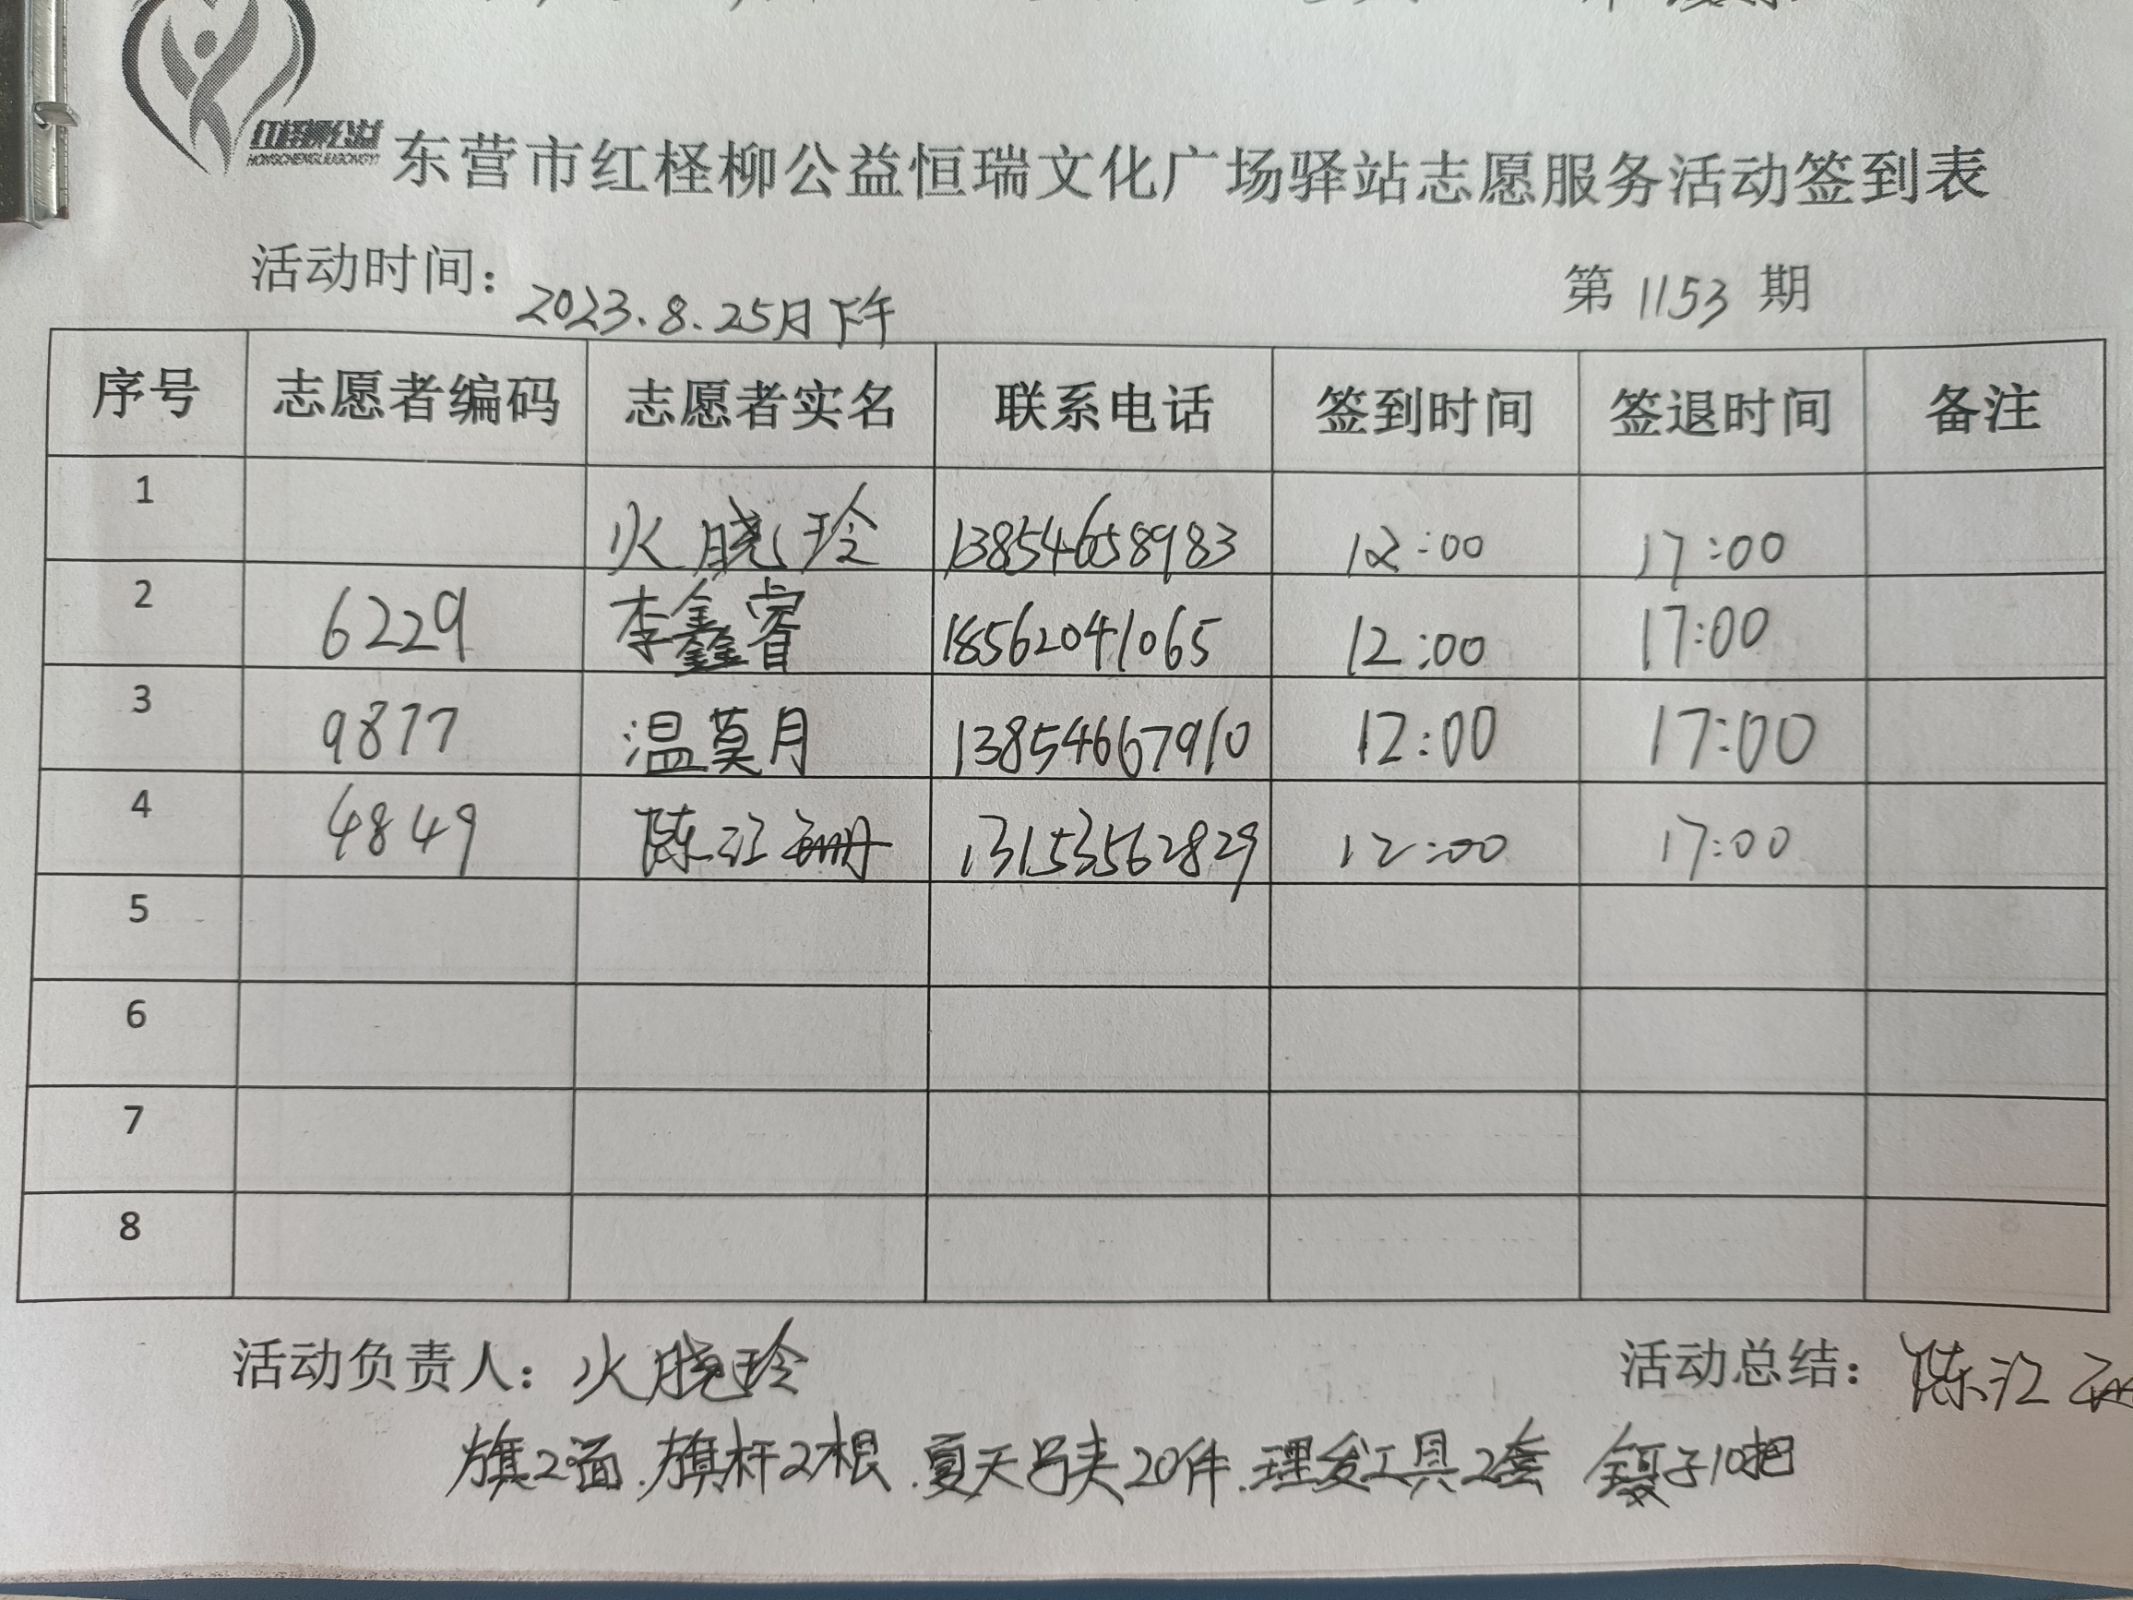 红柽柳公益
HONGCHENGLIUGONGYI
东营市红柽柳公益恒瑞文化广场驿站志愿服务活动签到表
活动时间：2023.8.25日下午 第1153期
序号 志愿者编码 志愿者实名 联系电话 签到时间 签退时间 备注
1 火晓玲 13854658983 12:00 17:00
2 6229 李鑫睿 18562041065 12:00 17:00
3 9877 温莫月 13854667910 12:00 17:00
4 4849 陈江珊 13153562829 12:00 17:00
5
6
7
8
活动负责人：火晓玲 活动总结：陈江
旗2面.旗杆2根.夏天马夹20件.理发工具2套 镊子10把